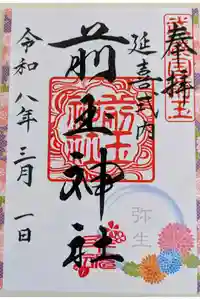 奉拝
延喜式内
前玉神社
弥生
令和八年三月一日